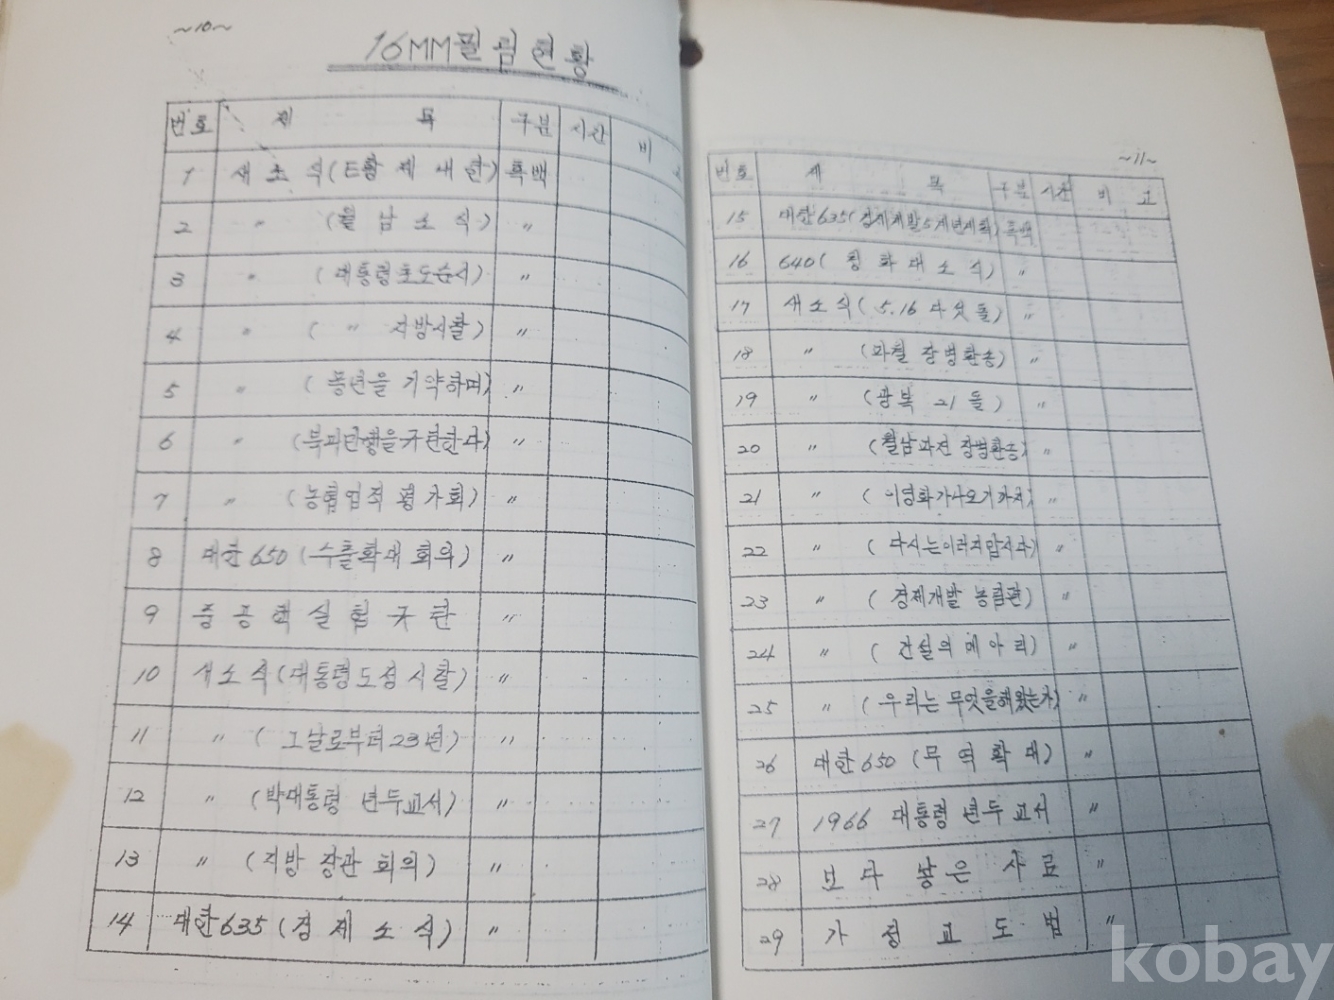 ~10~
16MM필림현황
번호 제 목 구분 시간 비 고
1 새소식(E황제내한) 흑백
2 〃 (월남소식) 〃
3 〃 (대통령초도순시) 〃
4 〃 ( 〃 지방시찰) 〃
5 〃 (풍년을 기약하며) 〃
6 〃 (북괴만행을규탄한다) 〃
7 〃 (농협업적 평가회) 〃
8 대한650 (수출확대회의) 〃
9 중공핵실험규탄 〃
10 새소식(대통령도정시찰) 〃
11 〃 (그날로부터23년) 〃
12 〃 (박대통령 년두교서) 〃
13 〃 (지방장관회의) 〃
14 대한635 (경제소식) 〃
~11~
번호 제 목 구분 시간 비 고
15 대한635(경제개발5개년계획) 흑백
16 640 (청화대소식) 〃
17 새소식 (5.16다섯돌) 〃
18 〃 (장병환송) 〃
19 〃 (광복 21돌) 〃
20 〃 (월남파견 장병환송) 〃
21 〃 (이영화가나오기까지) 〃
22 〃 (다시는이러지맙시다) 〃
23 〃 (경제개발 농림편) 〃
24 〃 (건설의메아리) 〃
25 〃 (우리는 무엇을해왔는가) 〃
26 대한650 (무역확대) 〃
27 1966 대통령 년두교서 〃
28 보다 낳은 사료 〃
29 가정교도법 〃
kobay